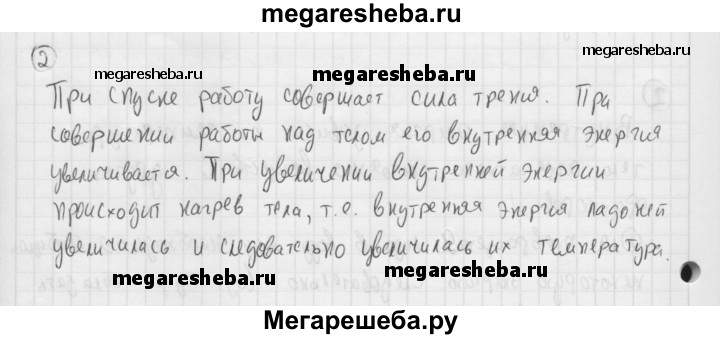 megaresheba.ru
2
megaresheba.ru
megaresheba.ru
megaresheba.ru
При спуске работу совершает сила трения. При
совершении работы над телом его внутренняя энергия
увеличивается. При увеличении внутренней энергии
происходит нагрев тела, т.е. внутренняя энергия ладоней
увеличилась и следовательно увеличилась их температура.
megaresheba.ru
megaresheba.ru
Мегарешеба.ру